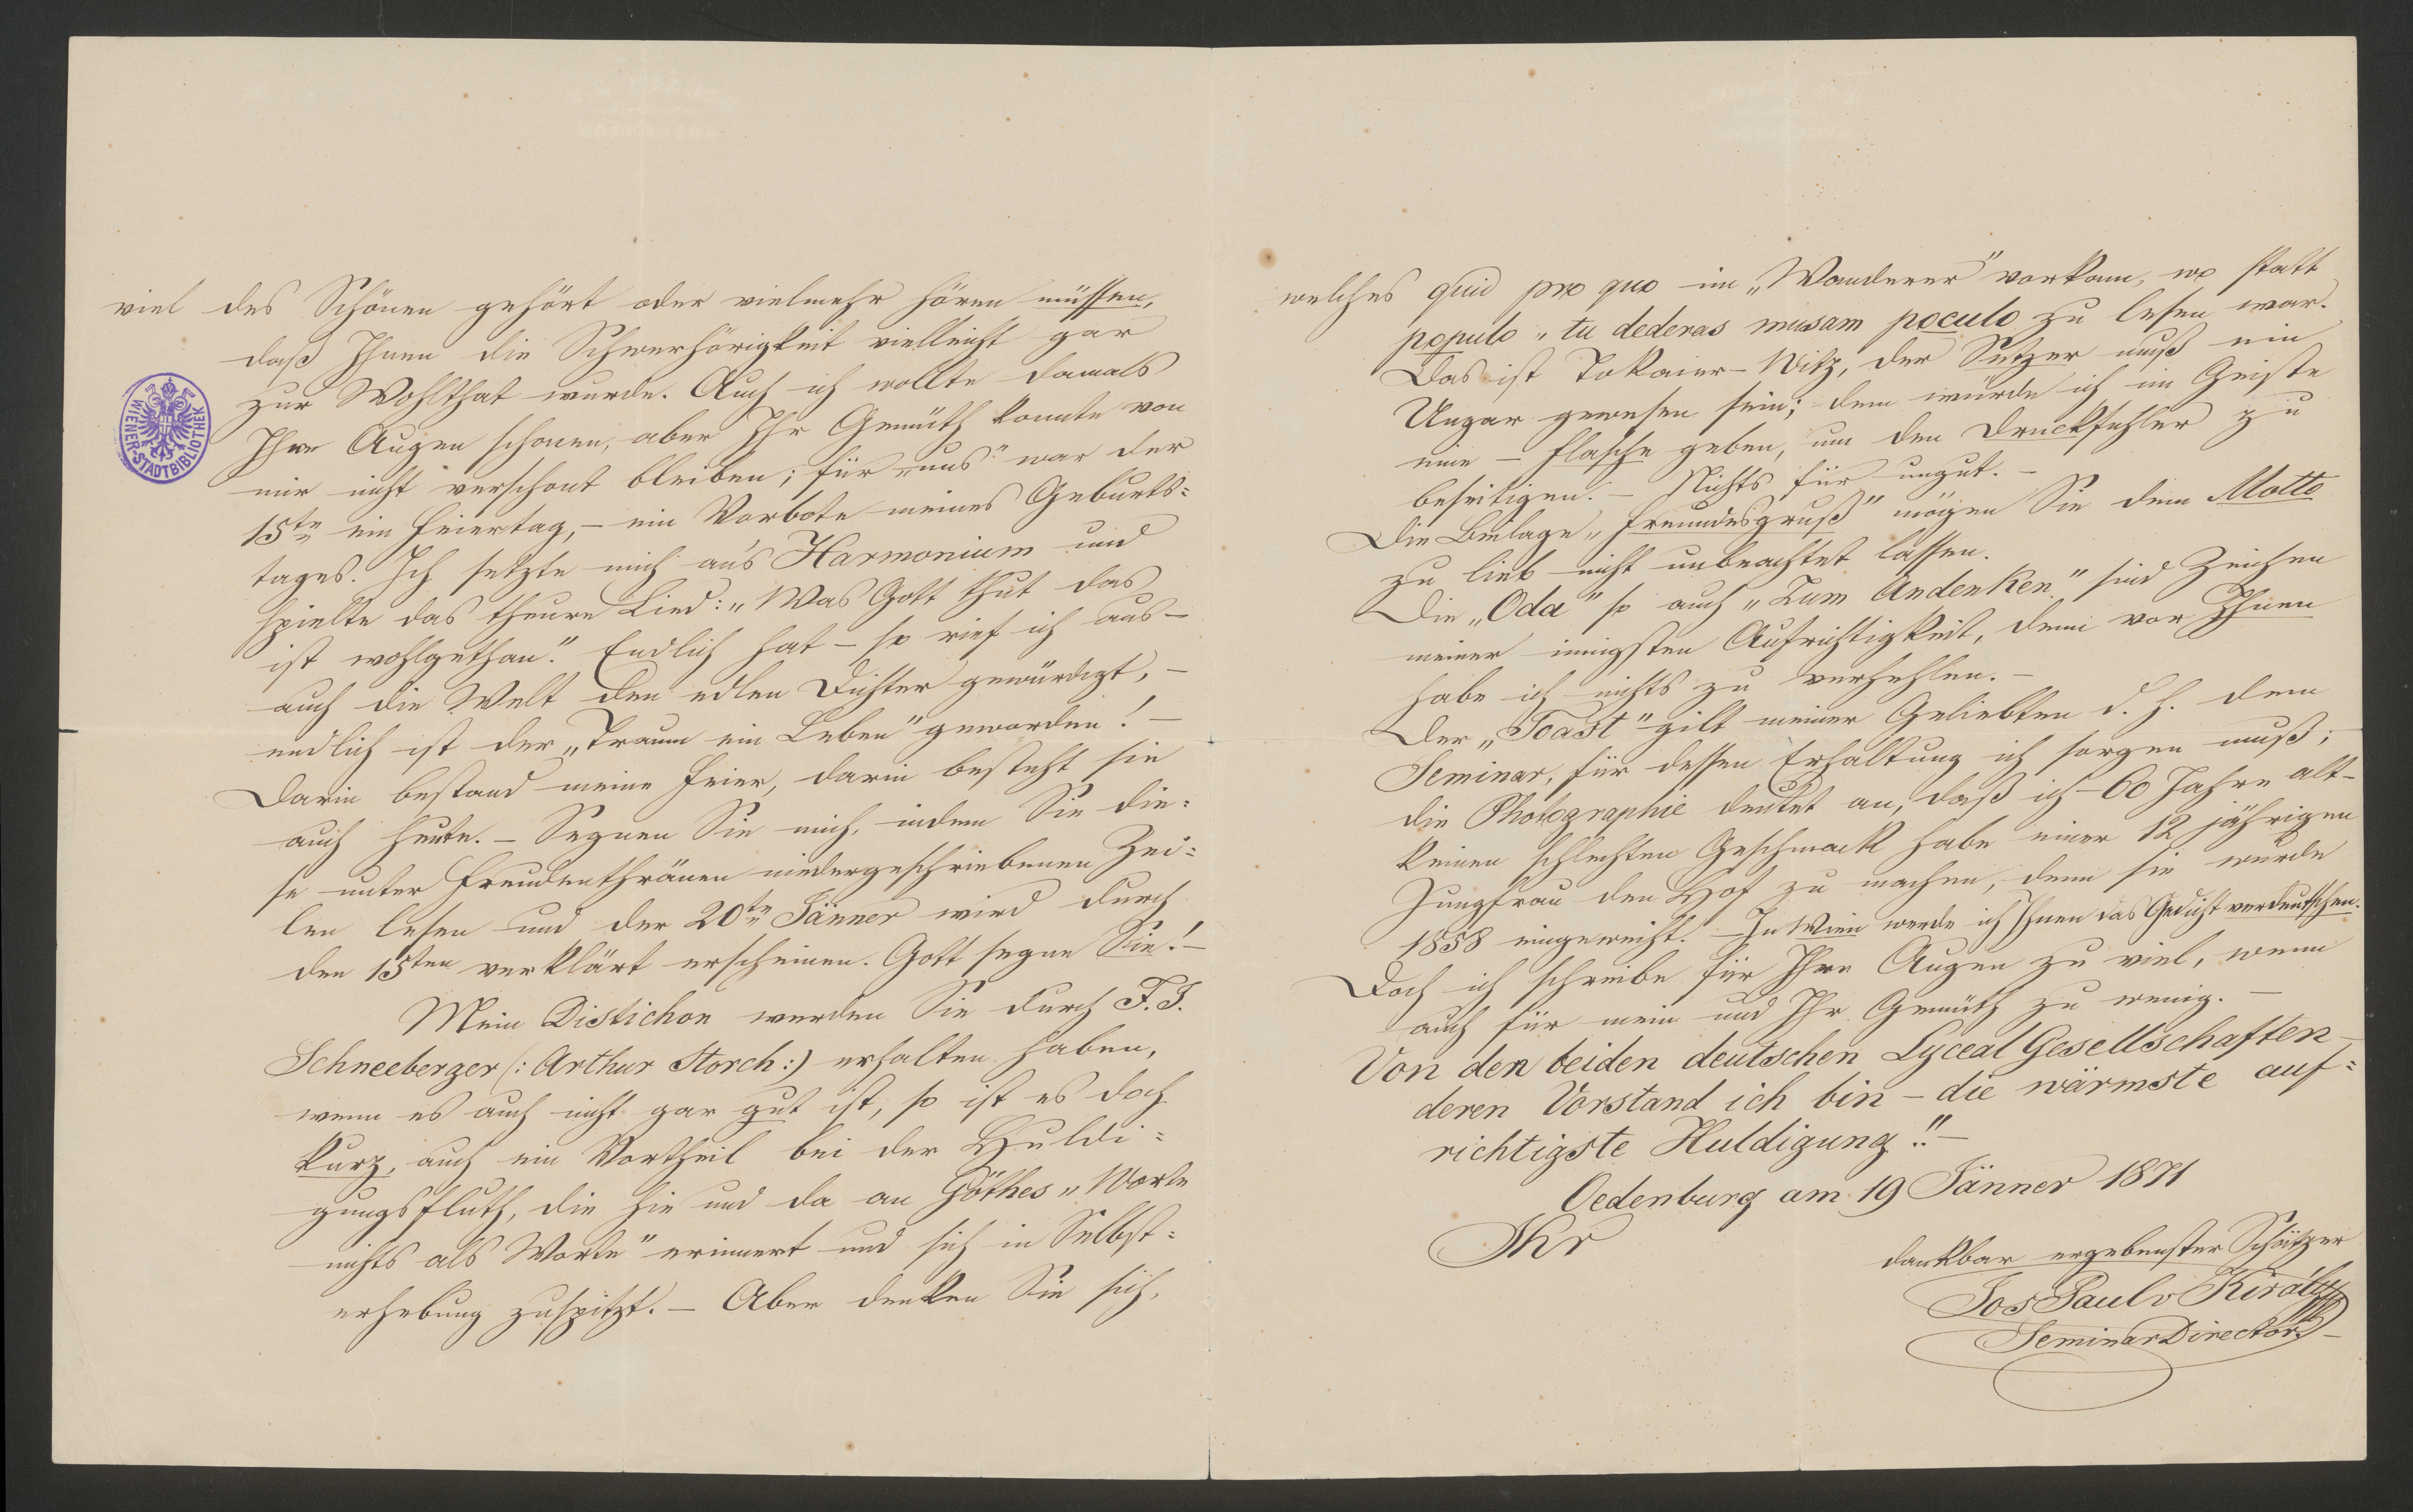 viel des Schönen gehört oder vielmehr hören müssen,
daß Ihnen die Schwerhörigkeit vielleicht gar
zur Wohlthat wurde. Auch ich wollte damals
Ihre Augen schonen, aber Ihr Gemüth konnte von
mir nicht verschont bleiben; für „uns" war der
15te ein Feiertag, – ein Vorbote meines Geburts=
tages. Ich setzte mich an's Harmonium und
spielte das theure Lied: „Was Gott thut das
ist wohlgethan." Endlich hat – so rief ich aus –
auch die Welt den edlen Dichter gewürdigt, –
endlich ist der „Traum ein Leben" geworden! –
Darin bestand meine Feier, darin besteht sie
auch heute. – Segnen Sie mich, indem Sie die=
se unter Freudenthränen niedergeschriebenen Zei=
len lesen und der 20te Jänner wird durch
den 15ten verklärt erscheinen. Gott segne Sie! –
Mein Distichon werden Sie durch F. J.
Schneeberger (: Arthur Storch :) erhalten haben,
wenn es auch nicht gar gut ist, so ist es doch
kurz, auch ein Vortheil bei der Huldi=
gungsfluth, die hie und da an Göthes „Worte
nichts als Worte" erinnert und sich in Selbst=
erhebung zuspitzt. – Aber denken Sie sich,
WIENER-STADTBIBLIOTHEK
welches quid pro quo im „Wanderer" vorkam, wo statt
populo „tu dederas musam poculo zu lesen war.
Das ist Tokaier-Witz, der Setzer muß ein
Ungar gewesen sein; dem würde ich im Geiste
eine – Flasche geben, um den Druckfehler zu
beseitigen. – Nichts für ungut. –
Die Beilage „Freundesgruß" mögen Sie dem Motto
zu lieb nicht unbeachtet lassen.
Die „Oda" so auch „Zum Andenken" sind Zeichen
meiner innigsten Aufrichtigkeit, denn vor Ihnen
habe ich nichts zu verhehlen. –
Der „Toast" gilt meiner Geliebten d. h. dem
Seminar, für dessen Erhaltung ich sorgen muß;
die Photographie deutet an, daß ich – 60 Jahre alt –
keinen schlechten Geschmack habe einer 12 jährigen
Jungfrau den Hof zu machen, denn sie wurde
1858 eingeweiht. – In Wien werde ich Ihnen das Gedicht verdeutschen.
Doch ich schreibe für Ihre Augen zu viel, wenn
auch für mein und Ihr Gemüth zu wenig. –
Von den beiden deutschen Lyceal Gesellschaften –
deren Vorstand ich bin – die wärmste auf=
richtigste Huldigung!! –
Oedenburg am 19 Jänner 1871
Ihr
dankbar ergebenster Schätzer
Jos Paul v Király
SeminarDirector